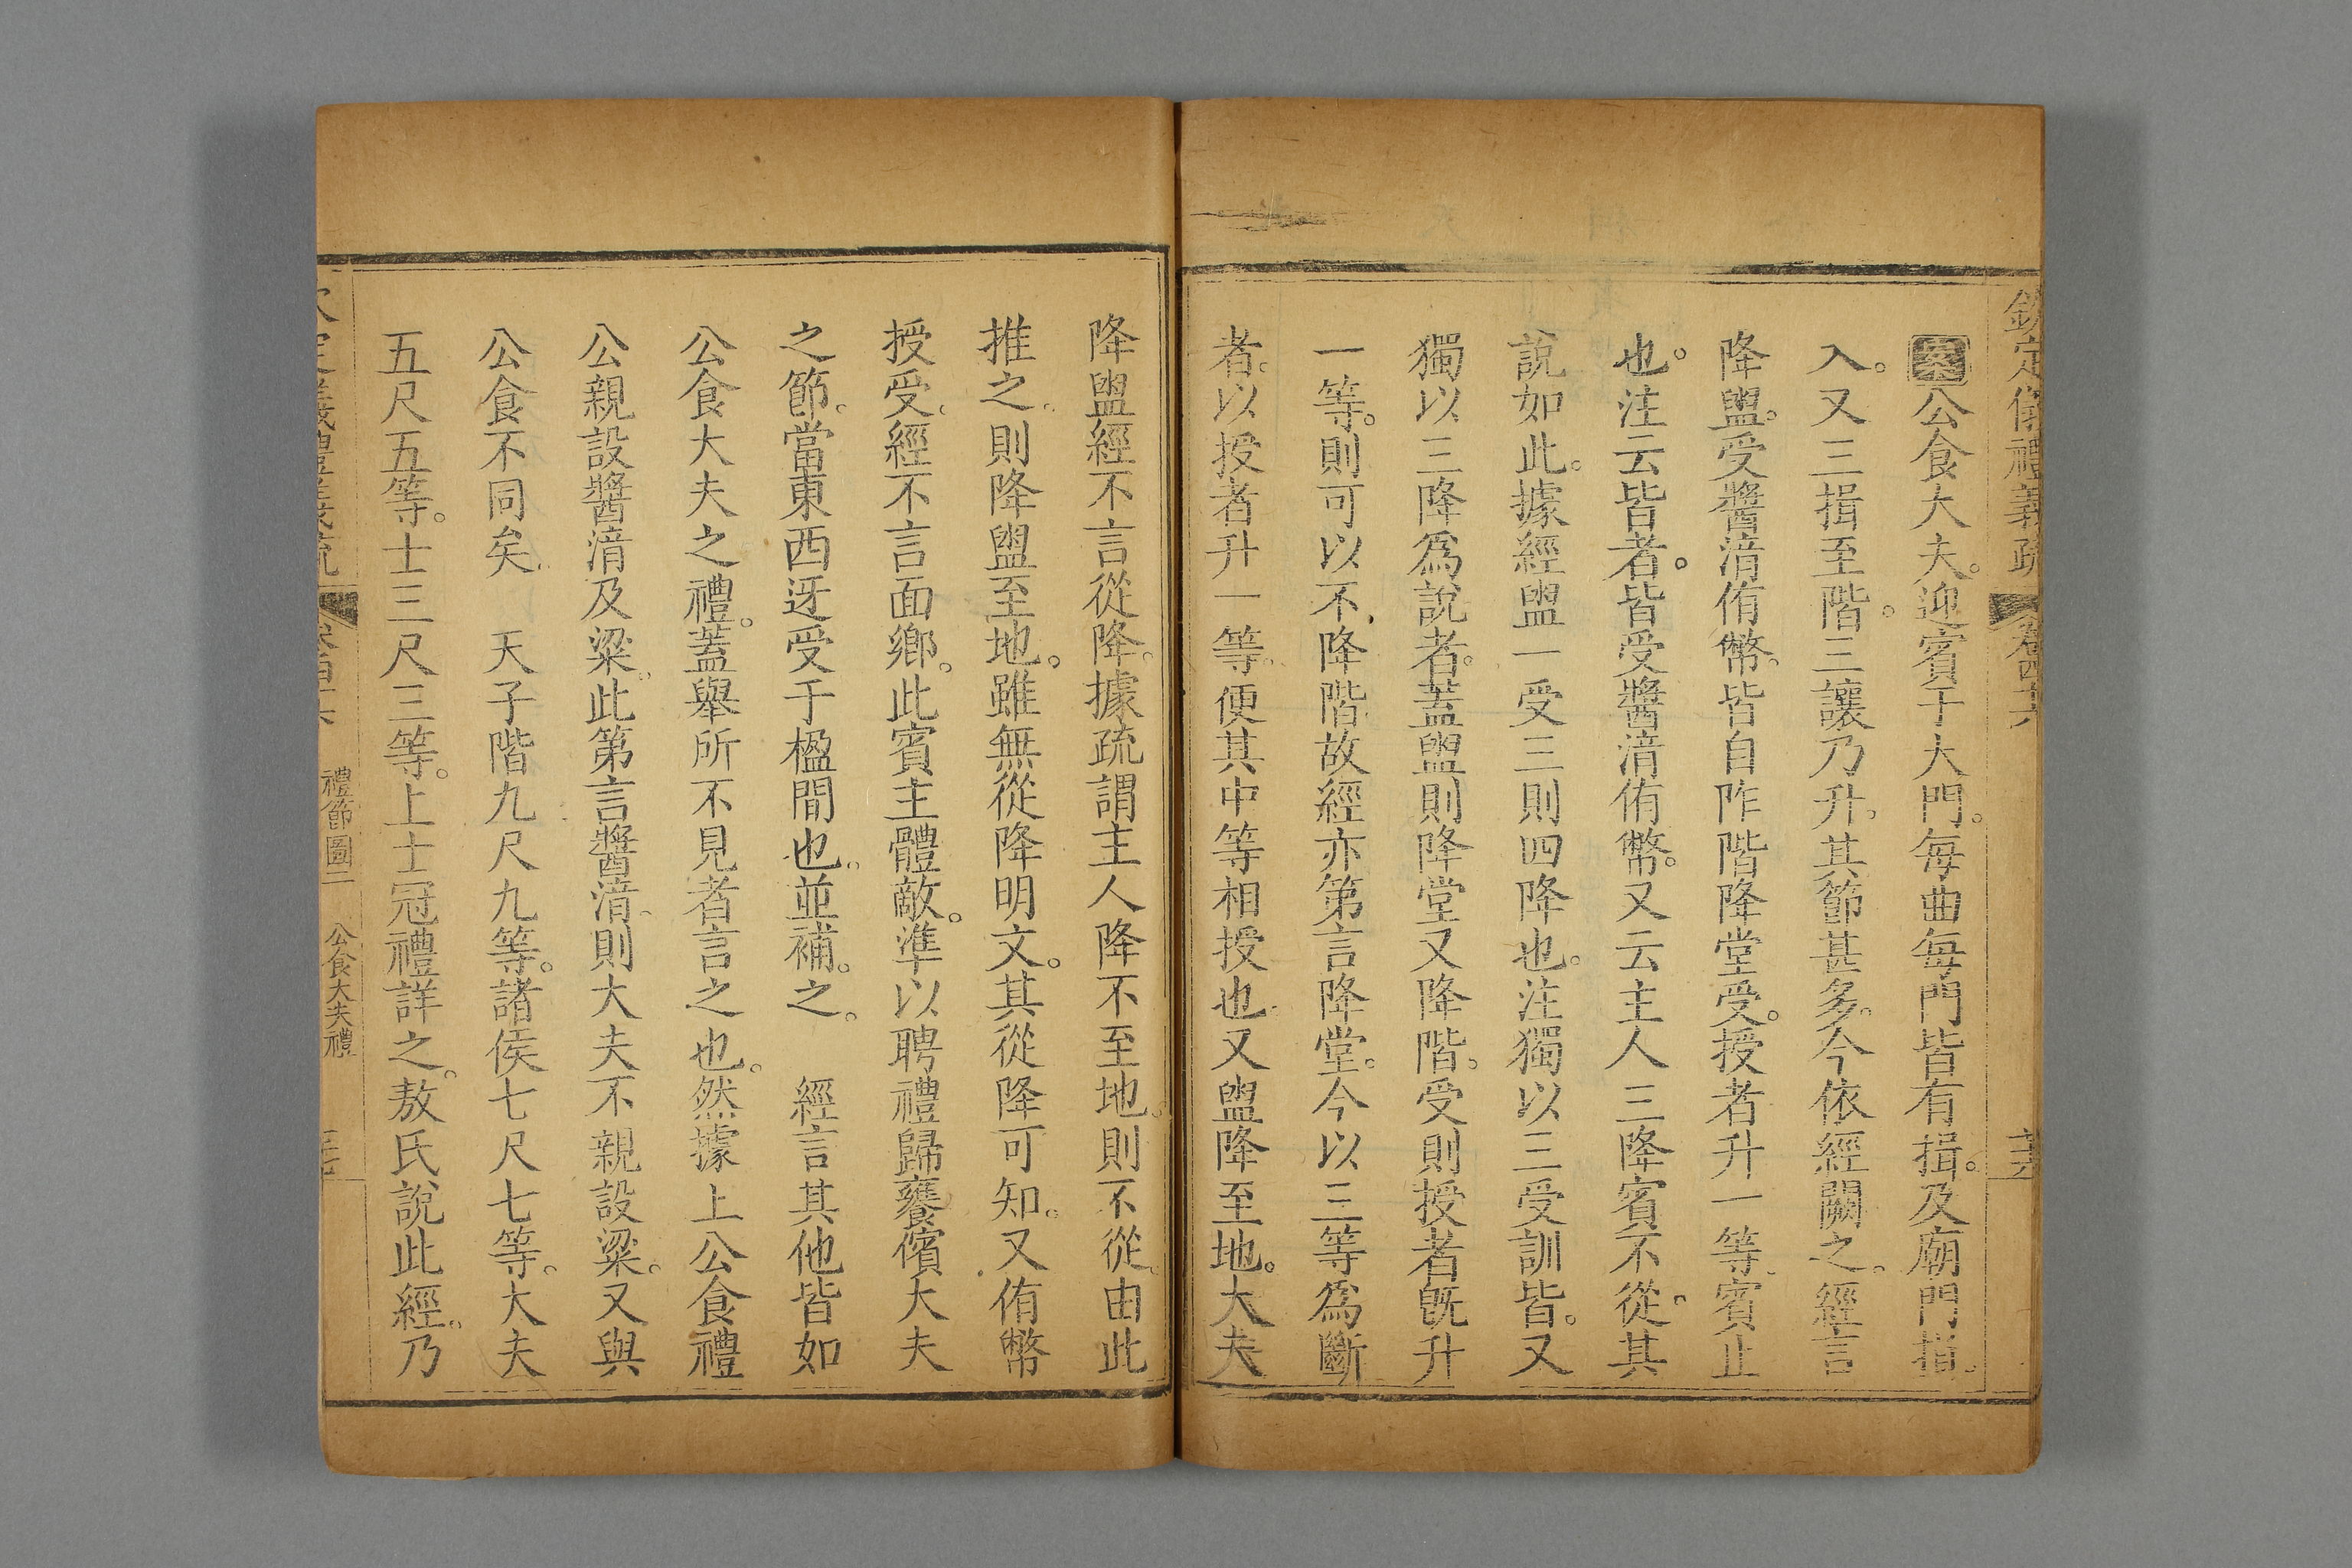 欽定儀禮義疏
案公食大夫。迎賓于大門。每曲每門皆有揖。及廟門揖。
入。又三揖至階。三讓乃升。其節甚多。今依經闕之。經言
降盥。受醬湇侑幣。皆自阼階降堂受。授者升一等。賓止
也。注云皆者。皆受醬湇侑幣。又云主人三降賓不從。其
說如此。據經盥一受三則四降也。注獨以三受訓皆。又
獨以三降爲說者。蓋盥則降堂又降階。受則授者既升
一等。則可以不降階故經亦第言降堂。今以三等爲斷
者。以授者升一等。便其中等相授也又盥降至地。大夫
降盥經不言從降。據疏謂主人降不至地。則不從。由此
推之。則降盥至地。雖無從降明文。其從降可知。又侑幣
授受。經不言面鄉。此賓主體敵。準以聘禮歸饔儐大夫
之節。當東西迓受于楹間也。並補之。　經言其他皆如
公食大夫之禮。蓋舉所不見者言之也。然據上公食禮
公親設醬湇及粱。此第言醬湇。則大夫不親設粱。又與
公食不同矣　天子階九尺九等。諸侯七尺七等。大夫
五尺五等。士三尺三等。上士冠禮詳之。敖氏說此經。乃
禮節圖二　公食大夫禮